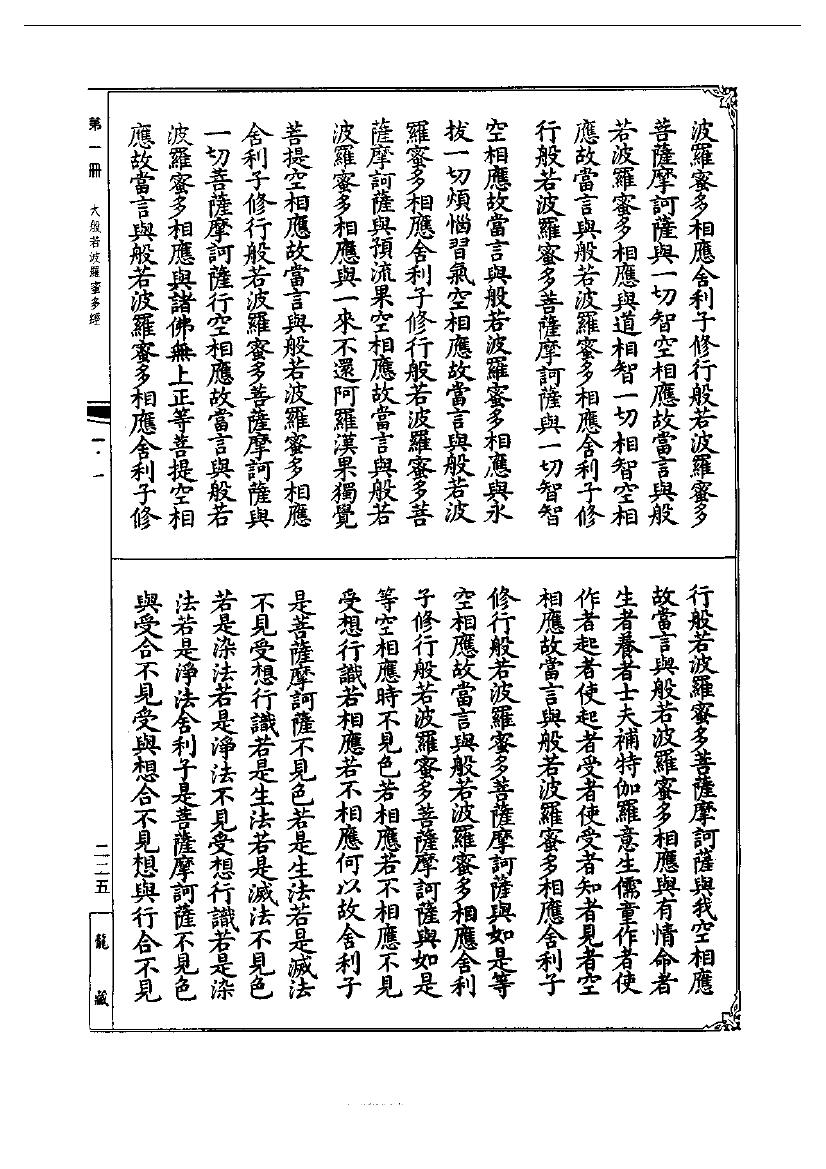 波羅蜜多相應舍利子修行般若波羅蜜多
菩薩摩訶薩與一切智空相應故當言與般
若波羅蜜多相應與道相智一切相智空相
應故當言與般若波羅蜜多相應舍利子修
行般若波羅蜜多菩薩摩訶薩與一切智智
空相應故當言與般若波羅蜜多相應與永
拔一切煩惱習氣空相應故當言與般若波
羅蜜多相應舍利子修行般若波羅蜜多菩
薩摩訶薩與預流果空相應故當言與般若
波羅蜜多相應與一來不還阿羅漢果獨覺
菩提空相應故當言與般若波羅蜜多相應
舍利子修行般若波羅蜜多菩薩摩訶薩與
一切菩薩摩訶薩行空相應故當言與般若
波羅蜜多相應與諸佛無上正等菩提空相
應故當言與般若波羅蜜多相應舍利子修
行般若波羅蜜多菩薩摩訶薩與我空相應
故當言與般若波羅蜜多相應與有情命者
生者養者士夫補特伽羅意生儒童作者使
作者起者使起者受者使受者知者見者空
相應故當言與般若波羅蜜多相應舍利子
修行般若波羅蜜多菩薩摩訶薩與如是等
空相應故當言與般若波羅蜜多相應舍利
子修行般若波羅蜜多菩薩摩訶薩與如是
等空相應時不見色若相應若不相應不見
受想行識若相應若不相應何以故舍利子
是菩薩摩訶薩不見色若是生法若是滅法
不見受想行識若是生法若是滅法不見色
若是染法若是淨法不見受想行識若是染
法若是淨法舍利子是菩薩摩訶薩不見色
與受合不見受與想合不見想與行合不見
第一冊 大般若波羅蜜多經
一·一
二二五
龍藏